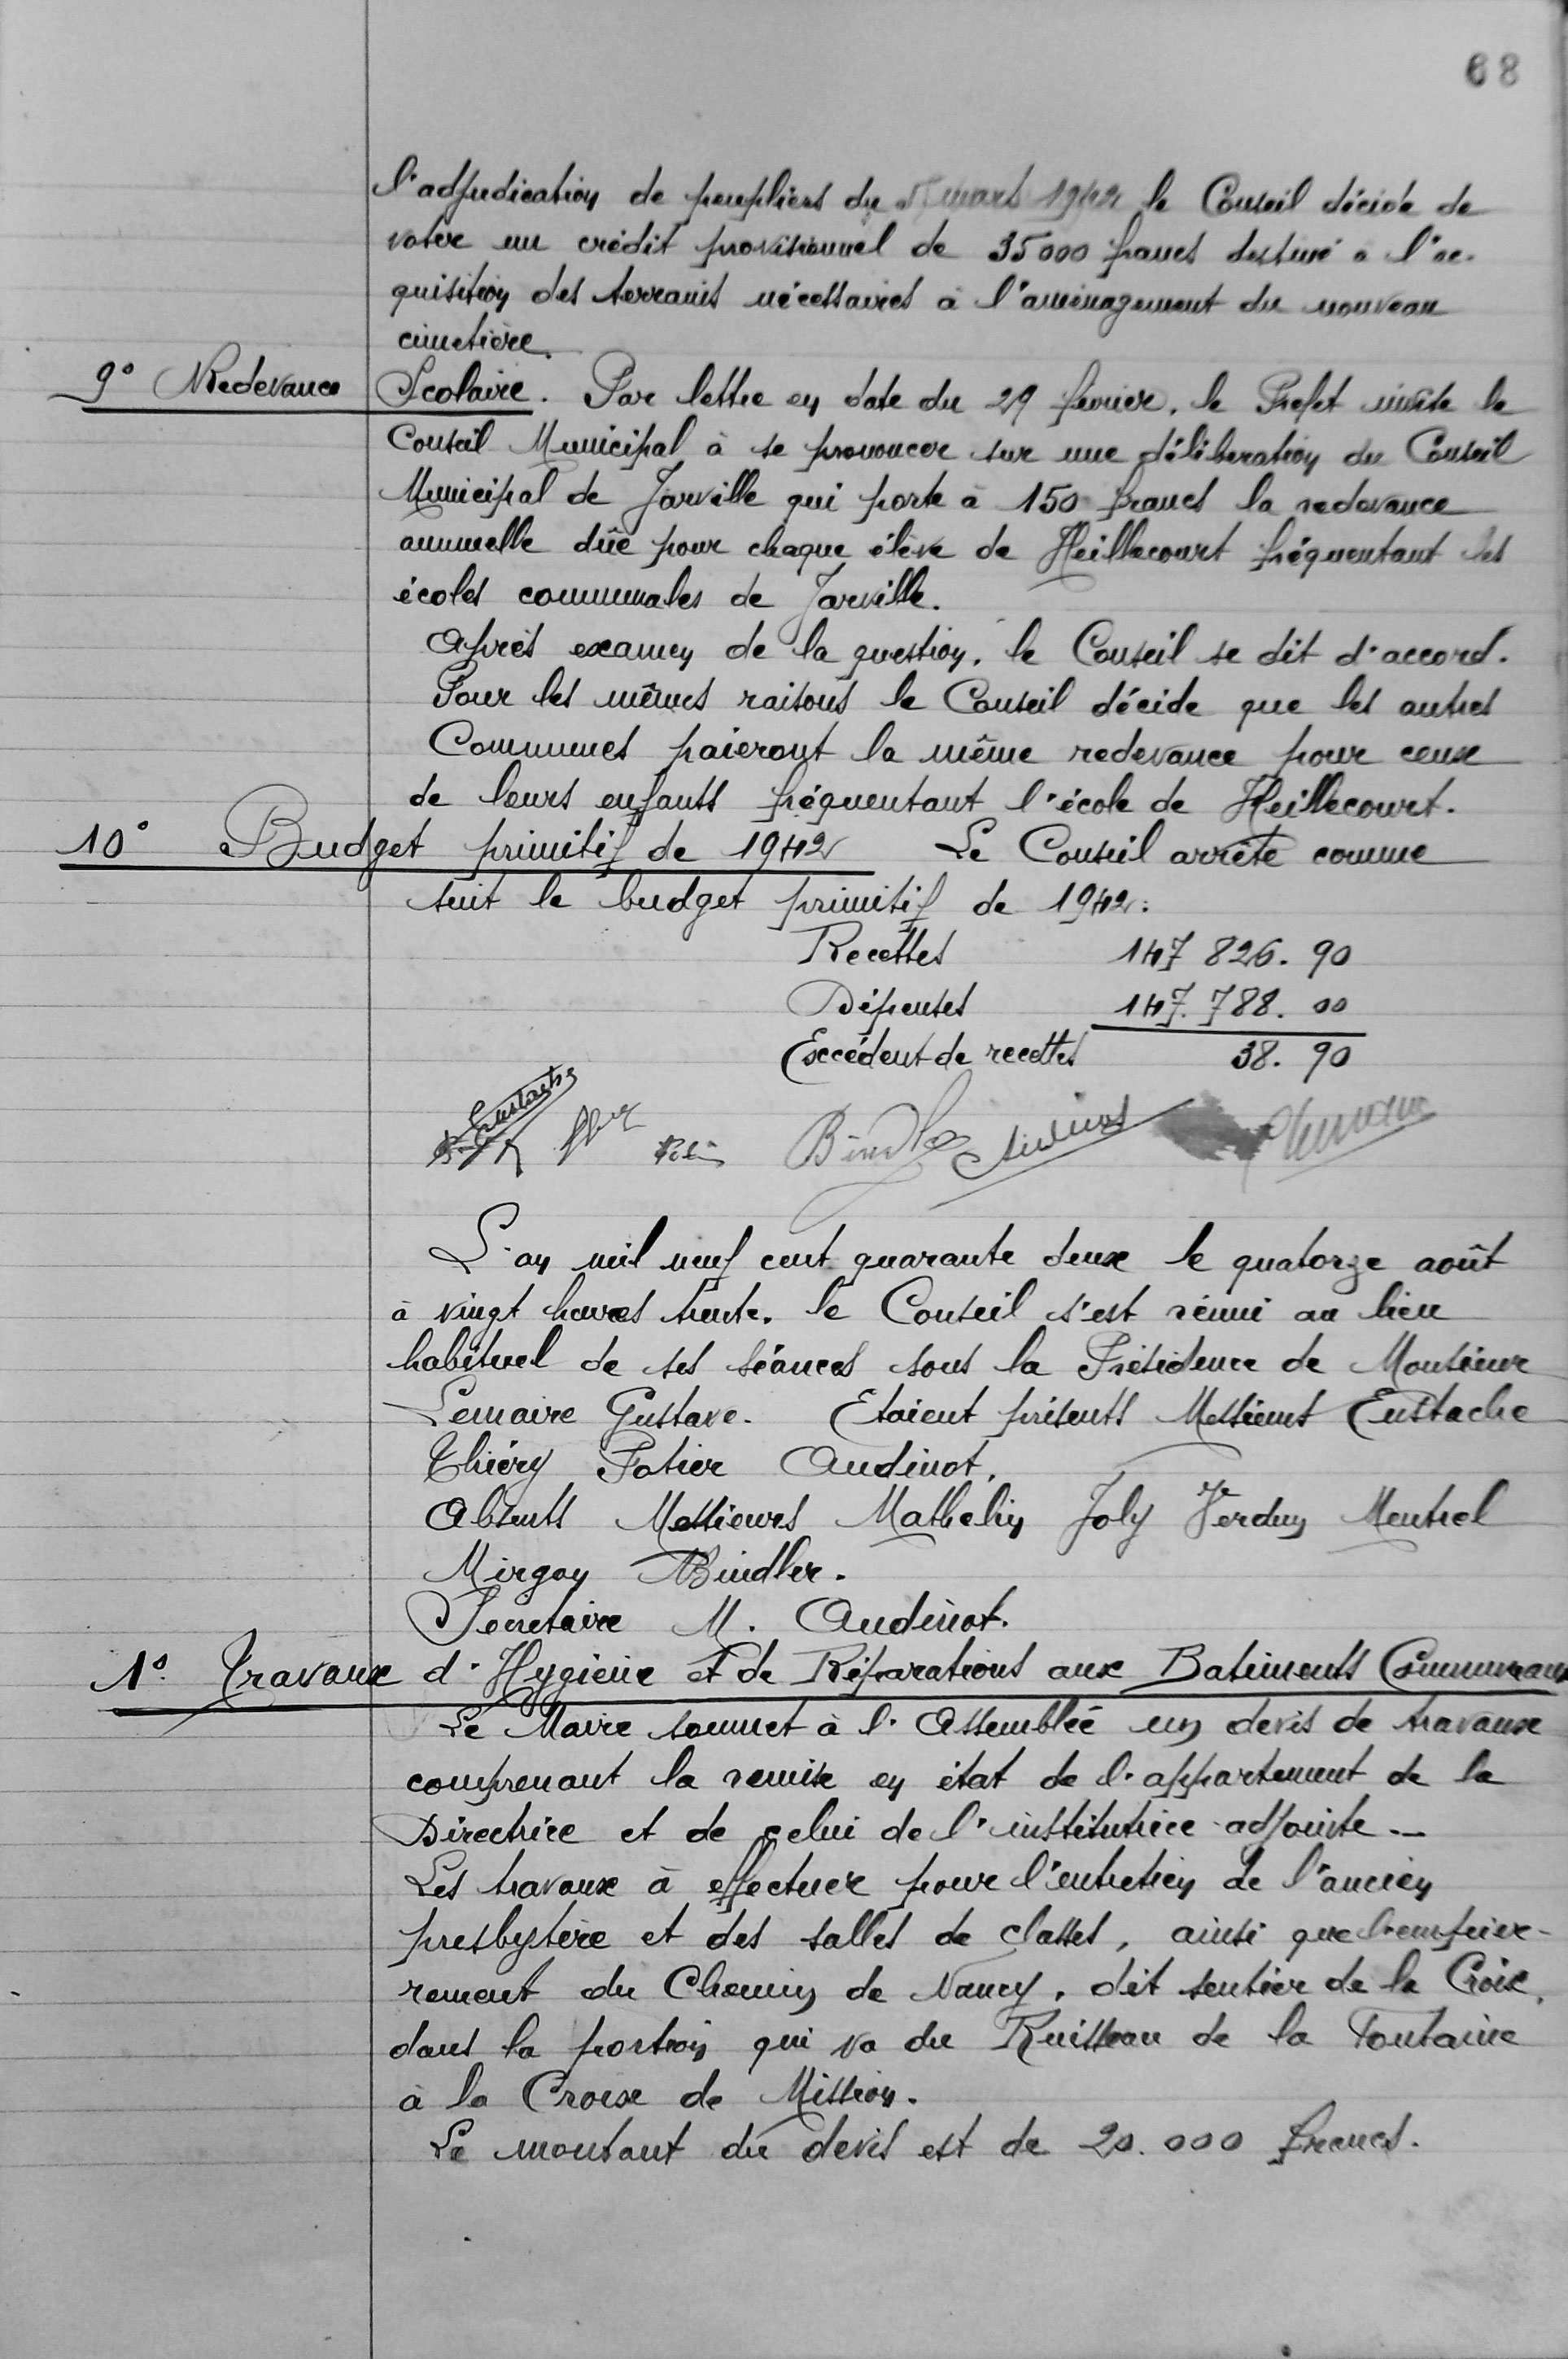 68
l'adjudication de peupliers du mars 1942 le Conseil décide de
voter un crédit provisionnel de 35000 francs destiné a l'ac-
quisition des terrains nécessaires à l'aménagement du nouveau
cimetière.
9° Redevance Scolaire. Par lettre en date du 29 fevrier, le Prefet invite le
Conseil Municipal à se prononcer sur une délibération du Conseil
Municipal de Jarville qui porte à 150 francs la redevance
annuelle dûe pour chaque élève de Heillecourt fréquentant les
écoles communales de Jarville.
Après examen de la question, le Conseil se dit d'accord.
Pour les mêmes raisons le Conseil décide que les autres
Communes paieront la même redevance pour ceux
de leurs enfants fréquentant l'école de Heillecourt.
10° Budget primitif de 1942 Le Conseil arrête comme
suit le budget primitif de 1942:
Recettes 147 826. 90
Dépenses 147. 788. 00
Excédent de recettes 38. 90
Eustache
Bindler Audinot Lemaire
L'an mil neuf cent quarante deux le quatorze août
à vingt heures trente. le Conseil s'est réuni au lieu
habituel de ses séances sous la Présidence de Monsieur
Lemaire Gustave. Etaient présents Messieurs Eustache
Thiéry Potier Audinot,
Absents Messieurs Mathelin Joly Verdun Mentrel
Mirgon Bindler.
Secretaire M. Audinot.
1° Travaux d'Hygiène et de Réparations aux Batiments Communaux
Le Maire soumet à l'Assemblée un devis de travaux
comprenant la remise en état de l'appartement de la
Directrice et de celui de l'institutrice adjointe.—
Les travaux à effectuer pour l'entretien de l'ancien
presbytère et des salles de classes, ainsi que l'empier-
rement du Chemin de Nancy, dit sentier de la Croix,
dans la portion qui va du Ruisseau de la Fontaine
à la Croix de Mission.
Le montant du devis est de 20.000 francs.